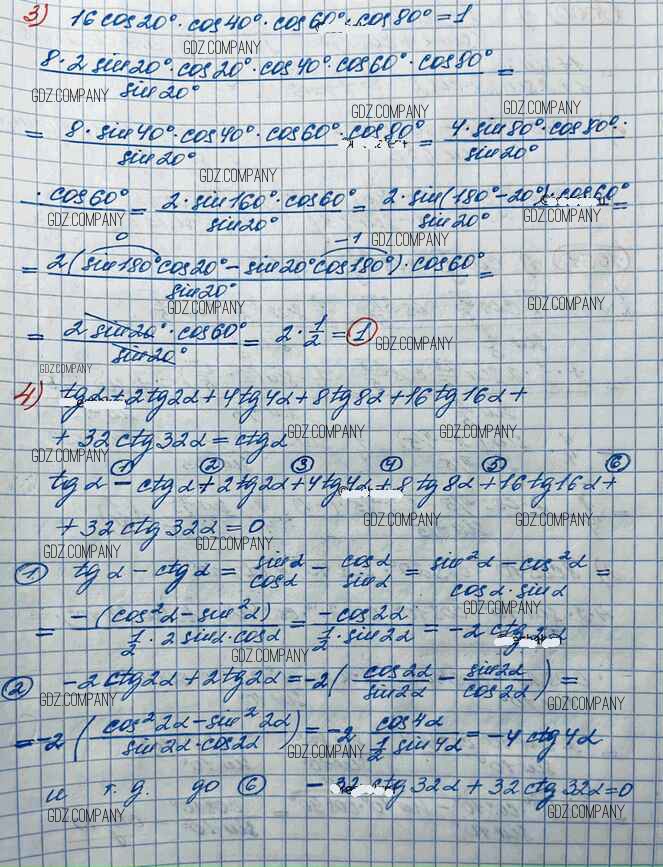 3) 16 cos20° · cos40° · cos60° · cos80° = 1
GDZ.COMPANY
8 · 2 sin20° · cos20° · cos40° · cos60° · cos80° / sin20° =
GDZ.COMPANY GDZ.COMPANY GDZ.COMPANY
= 8 · sin40° · cos40° · cos60° · cos80° / sin20° = 4 · sin80° · cos80° · / sin20°
GDZ.COMPANY
· cos60° = 2 · sin160° · cos60° / sin20° = 2 · sin(180° - 20°) · cos60° / sin20° =
GDZ.COMPANY GDZ.COMPANY GDZ.COMPANY
0 -1
= 2(sin180° cos20° - sin20° cos180°) · cos60° / sin20° =
GDZ.COMPANY GDZ.COMPANY GDZ.COMPANY
= 2 sin20° · cos60° / sin20° = 2 · 1/2 = 1
GDZ.COMPANY GDZ.COMPANY
GDZ.COMPANY
4) tgα + 2tg2α + 4tg4α + 8tg8α + 16tg16α +
+ 32ctg32α = ctgα
GDZ.COMPANY GDZ.COMPANY GDZ.COMPANY
① ② ③ ④ ⑤ ⑥
tgα - ctgα + 2tg2α + 4tg4α + 8tg8α + 16tg16α +
+ 32ctg32α = 0
GDZ.COMPANY GDZ.COMPANY
GDZ.COMPANY GDZ.COMPANY
① tgα - ctgα = sinα/cosα - cosα/sinα = sin²α - cos²α / cosα · sinα =
GDZ.COMPANY
= -(cos²α - sin²α) / 1/2 · 2 sinα · cosα = -cos2α / 1/2 · sin2α = -2 ctg2α
GDZ.COMPANY GDZ.COMPANY
② -2ctg2α + 2tg2α = -2(cos2α/sin2α - sin2α/cos2α) =
GDZ.COMPANY GDZ.COMPANY
= -2(cos²2α - sin²2α / sin2α · cos2α) = -2 cos4α / 1/2 sin4α = -4 ctg4α
GDZ.COMPANY GDZ.COMPANY
и т.д. до ⑥ -32ctg32α + 32ctg32α = 0
GDZ.COMPANY GDZ.COMPANY GDZ.COMPANY